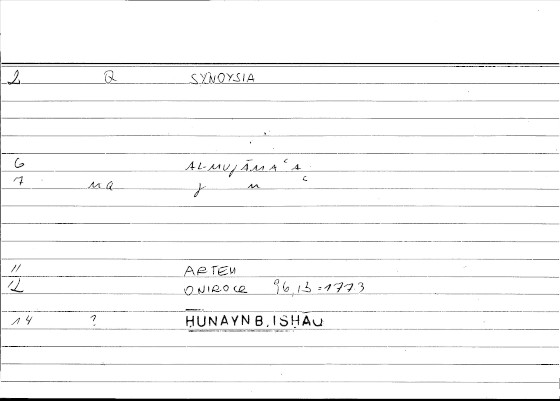 2 Q SYNOYSIA
6 AL-MUJĀMAʿA
7 na j m ʿ
11 ARTEM
12 ONIROCR 96,15=1773
14 ? HUNAYN B. ISHĀQ